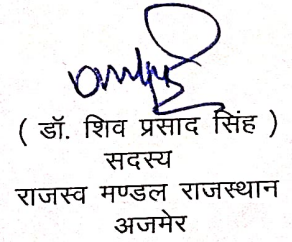 ( डॉ. शिव प्रसाद सिंह )
सदस्य
राजस्व मण्डल राजस्थान
अजमेर